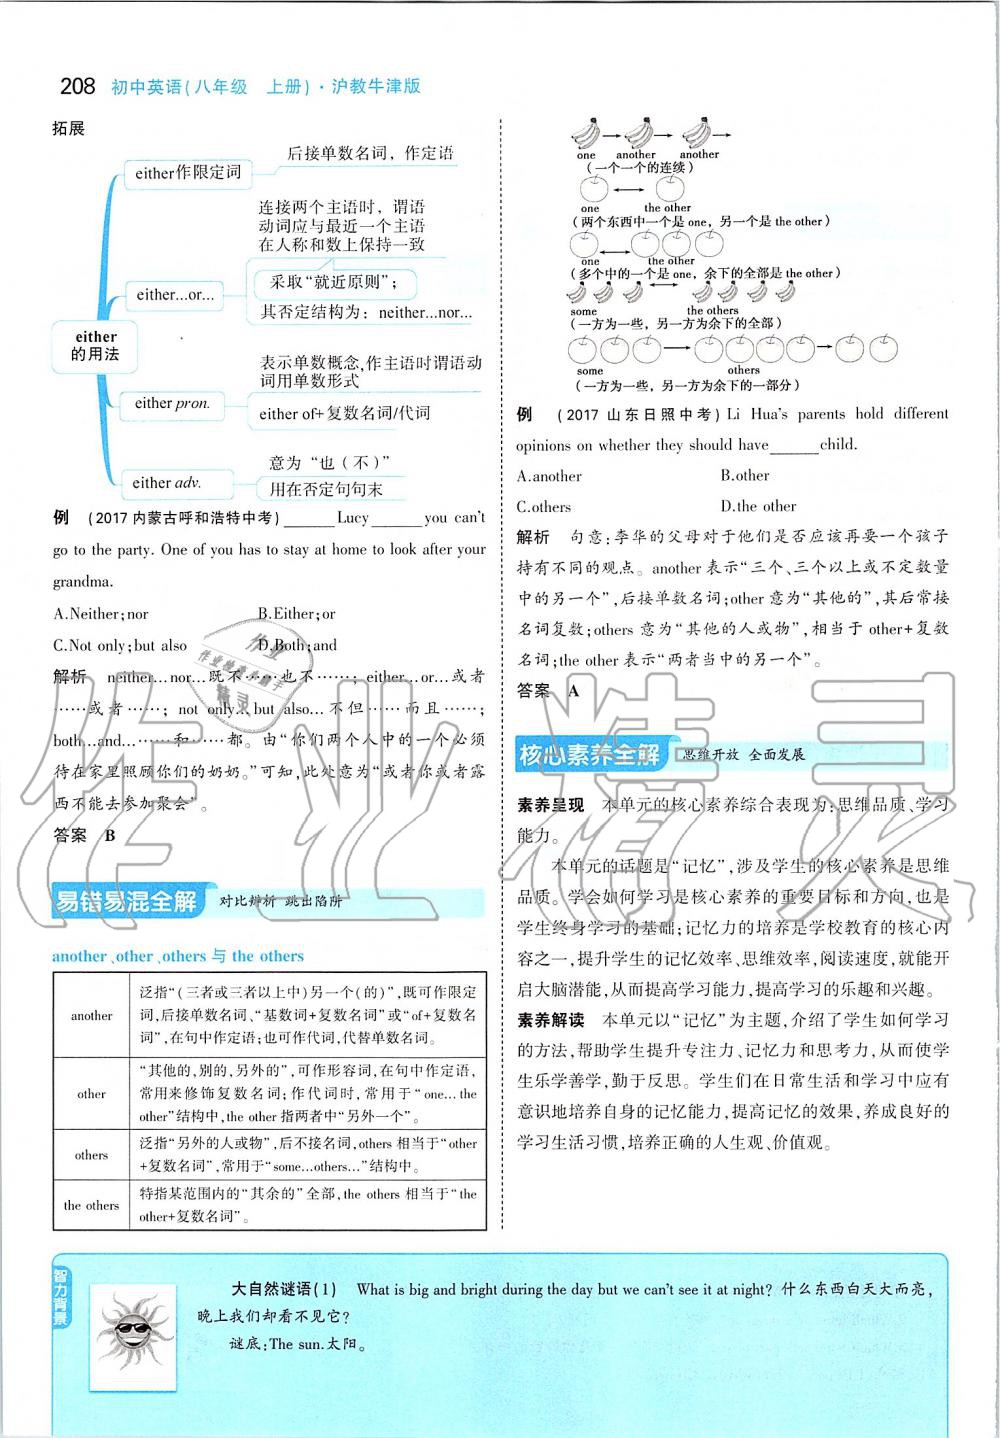 208 初中英语(八年级 上册)·沪教牛津版
拓展
either
的用法
either作限定词
后接单数名词，作定语
either...or...
连接两个主语时，谓语
动词应与最近一个主语
在人称和数上保持一致
采取“就近原则”；
其否定结构为：neither...nor...
either pron.
表示单数概念,作主语时谓语动
词用单数形式
either of+复数名词/代词
either adv.
意为“也(不)”
用在否定句句末
例 (2017内蒙古呼和浩特中考)______Lucy______you can't
go to the party. One of you has to stay at home to look after your
grandma.
A.Neither;nor B.Either;or
C.Not only;but also D.Both;and
解析 neither...nor...既不……也不……; either...or...或者
……或者……; not only...but also...不但……而且……;
both...and...……和……都。由“你们两个人中的一个必须
待在家里照顾你们的奶奶。”可知，此处意为“或者你或者露
西不能去参加聚会”。
答案 B
易错易混全解 对比辨析 跳出陷阱
another、other、others 与 the others
another
泛指“(三者或三者以上中)另一个(的)”,既可作限定
词,后接单数名词、“基数词+复数名词”或“of+复数名
词”,在句中作定语;也可作代词,代替单数名词。
other
“其他的,别的,另外的”,可作形容词,在句中作定语,
常用来修饰复数名词;作代词时,常用于“one...the
other”结构中,the other指两者中“另外一个”。
others
泛指“另外的人或物”,后不接名词,others相当于“other
+复数名词”,常用于“some...others...”结构中。
the others
特指某范围内的“其余的”全部,the others相当于“the
other+复数名词”。
one another another
(一个一个的连续)
one the other
(两个东西中一个是one，另一个是the other)
one the other
(多个中的一个是one，余下的全部是the other)
some the others
(一方为一些，另一方为余下的全部)
some others
(一方为一些，另一方为余下的一部分)
例 (2017山东日照中考)Li Hua's parents hold different
opinions on whether they should have______child.
A.another B.other
C.others D.the other
解析 句意:李华的父母对于他们是否应该再要一个孩子
持有不同的观点。another表示“三个、三个以上或不定数量
中的另一个”,后接单数名词;other意为“其他的”,其后常接
名词复数;others意为“其他的人或物”,相当于other+复数
名词;the other表示“两者当中的另一个”。
答案 A
核心素养全解 思维开放 全面发展
素养呈现 本单元的核心素养综合表现为:思维品质、学习
能力。
本单元的话题是“记忆”,涉及学生的核心素养是思维
品质。学会如何学习是核心素养的重要目标和方向,也是
学生终身学习的基础;记忆力的培养是学校教育的核心内
容之一,提升学生的记忆效率、思维效率,阅读速度,就能开
启大脑潜能,从而提高学习能力,提高学习的乐趣和兴趣。
素养解读 本单元以“记忆”为主题,介绍了学生如何学习
的方法,帮助学生提升专注力、记忆力和思考力,从而使学
生乐学善学,勤于反思。学生们在日常生活和学习中应有
意识地培养自身的记忆能力,提高记忆的效果,养成良好的
学习生活习惯,培养正确的人生观、价值观。
智力背景
大自然谜语(1) What is big and bright during the day but we can't see it at night? 什么东西白天大而亮,
晚上我们却看不见它?
谜底:The sun.太阳。
作业精灵
作业
作业检查小助手
精灵